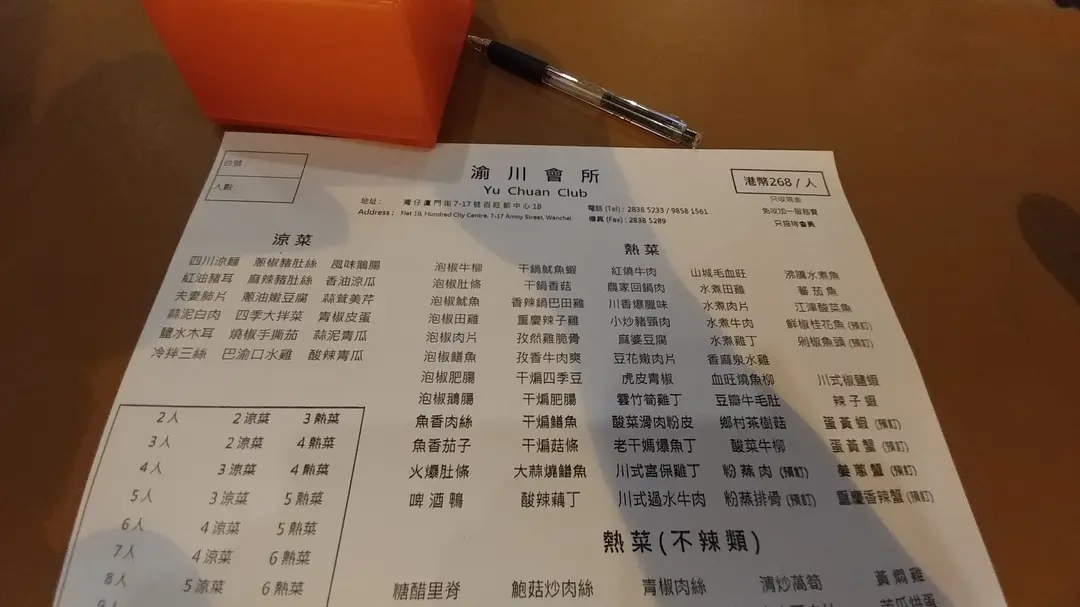 台號:
人數:
渝川會所
Yu Chuan Club
港幣268 / 人
只收現金
免收加一服務費
只招待會員
地址: 灣仔廈門街7-17號百旺都中心1B
電話 (Tel) : 2838 5233 / 9858 1561
Address : Flat 1B, Hundred City Centre, 7-17 Amoy Street, Wanchai
傳真 (Fax) : 2838 5289
涼菜
四川涼麵 蔥椒豬肚絲 風味鵝腸
紅油豬耳 麻辣豬肚絲 香油涼瓜
夫妻肺片 蔥油嫩豆腐 蒜茸美芹
蒜泥白肉 四季大拌菜 青椒皮蛋
鹽水木耳 燒椒手撕茄 蒜泥青瓜
冷拌三絲 巴渝口水雞 酸辣青瓜
2人 2涼菜 3熱菜
3人 2涼菜 4熱菜
4人 3涼菜 4熱菜
5人 3涼菜 5熱菜
6人 4涼菜 5熱菜
7人 4涼菜 6熱菜
8人 5涼菜 6熱菜
熱菜
泡椒牛柳 干鍋魷魚蝦 紅燒牛肉 山城毛血旺 沸騰水煮魚
泡椒肚條 干鍋香菇 農家回鍋肉 水煮田雞 蕃茄魚
泡椒魷魚 香辣鍋巴田雞 川香爆臘味 水煮肉片 江津酸菜魚
泡椒田雞 重慶辣子雞 小炒豬頸肉 水煮牛肉 鮮椒桂花魚 (預訂)
泡椒肉片 孜然雞脆骨 麻婆豆腐 水煮雞丁 剁椒魚頭 (預訂)
泡椒鱔魚 孜香牛肉爽 豆花嫩肉片 香麻泉水雞
泡椒肥腸 干煸四季豆 虎皮青椒 血旺燒魚柳 川式椒鹽蝦
泡椒鵝腸 干煸肥腸 雲竹筍雞丁 豆瓣牛毛肚 辣子蝦
魚香肉絲 干煸鱔魚 酸菜滑肉粉皮 鄉村茶樹菇 蛋黃蝦 (預訂)
魚香茄子 干煸菇條 老干媽爆魚丁 酸菜牛柳 蛋黃蟹 (預訂)
火爆肚條 大蒜燒鱔魚 川式宮保雞丁 粉蒸肉 (預訂) 姜蔥蟹 (預訂)
啤酒鴨 酸辣藕丁 川式過水牛肉 粉蒸排骨 (預訂) 重慶香辣蟹 (預訂)
熱菜(不辣類)
糖醋里脊 鮑菇炒肉絲 青椒肉絲 清炒萵筍 黃燜雞